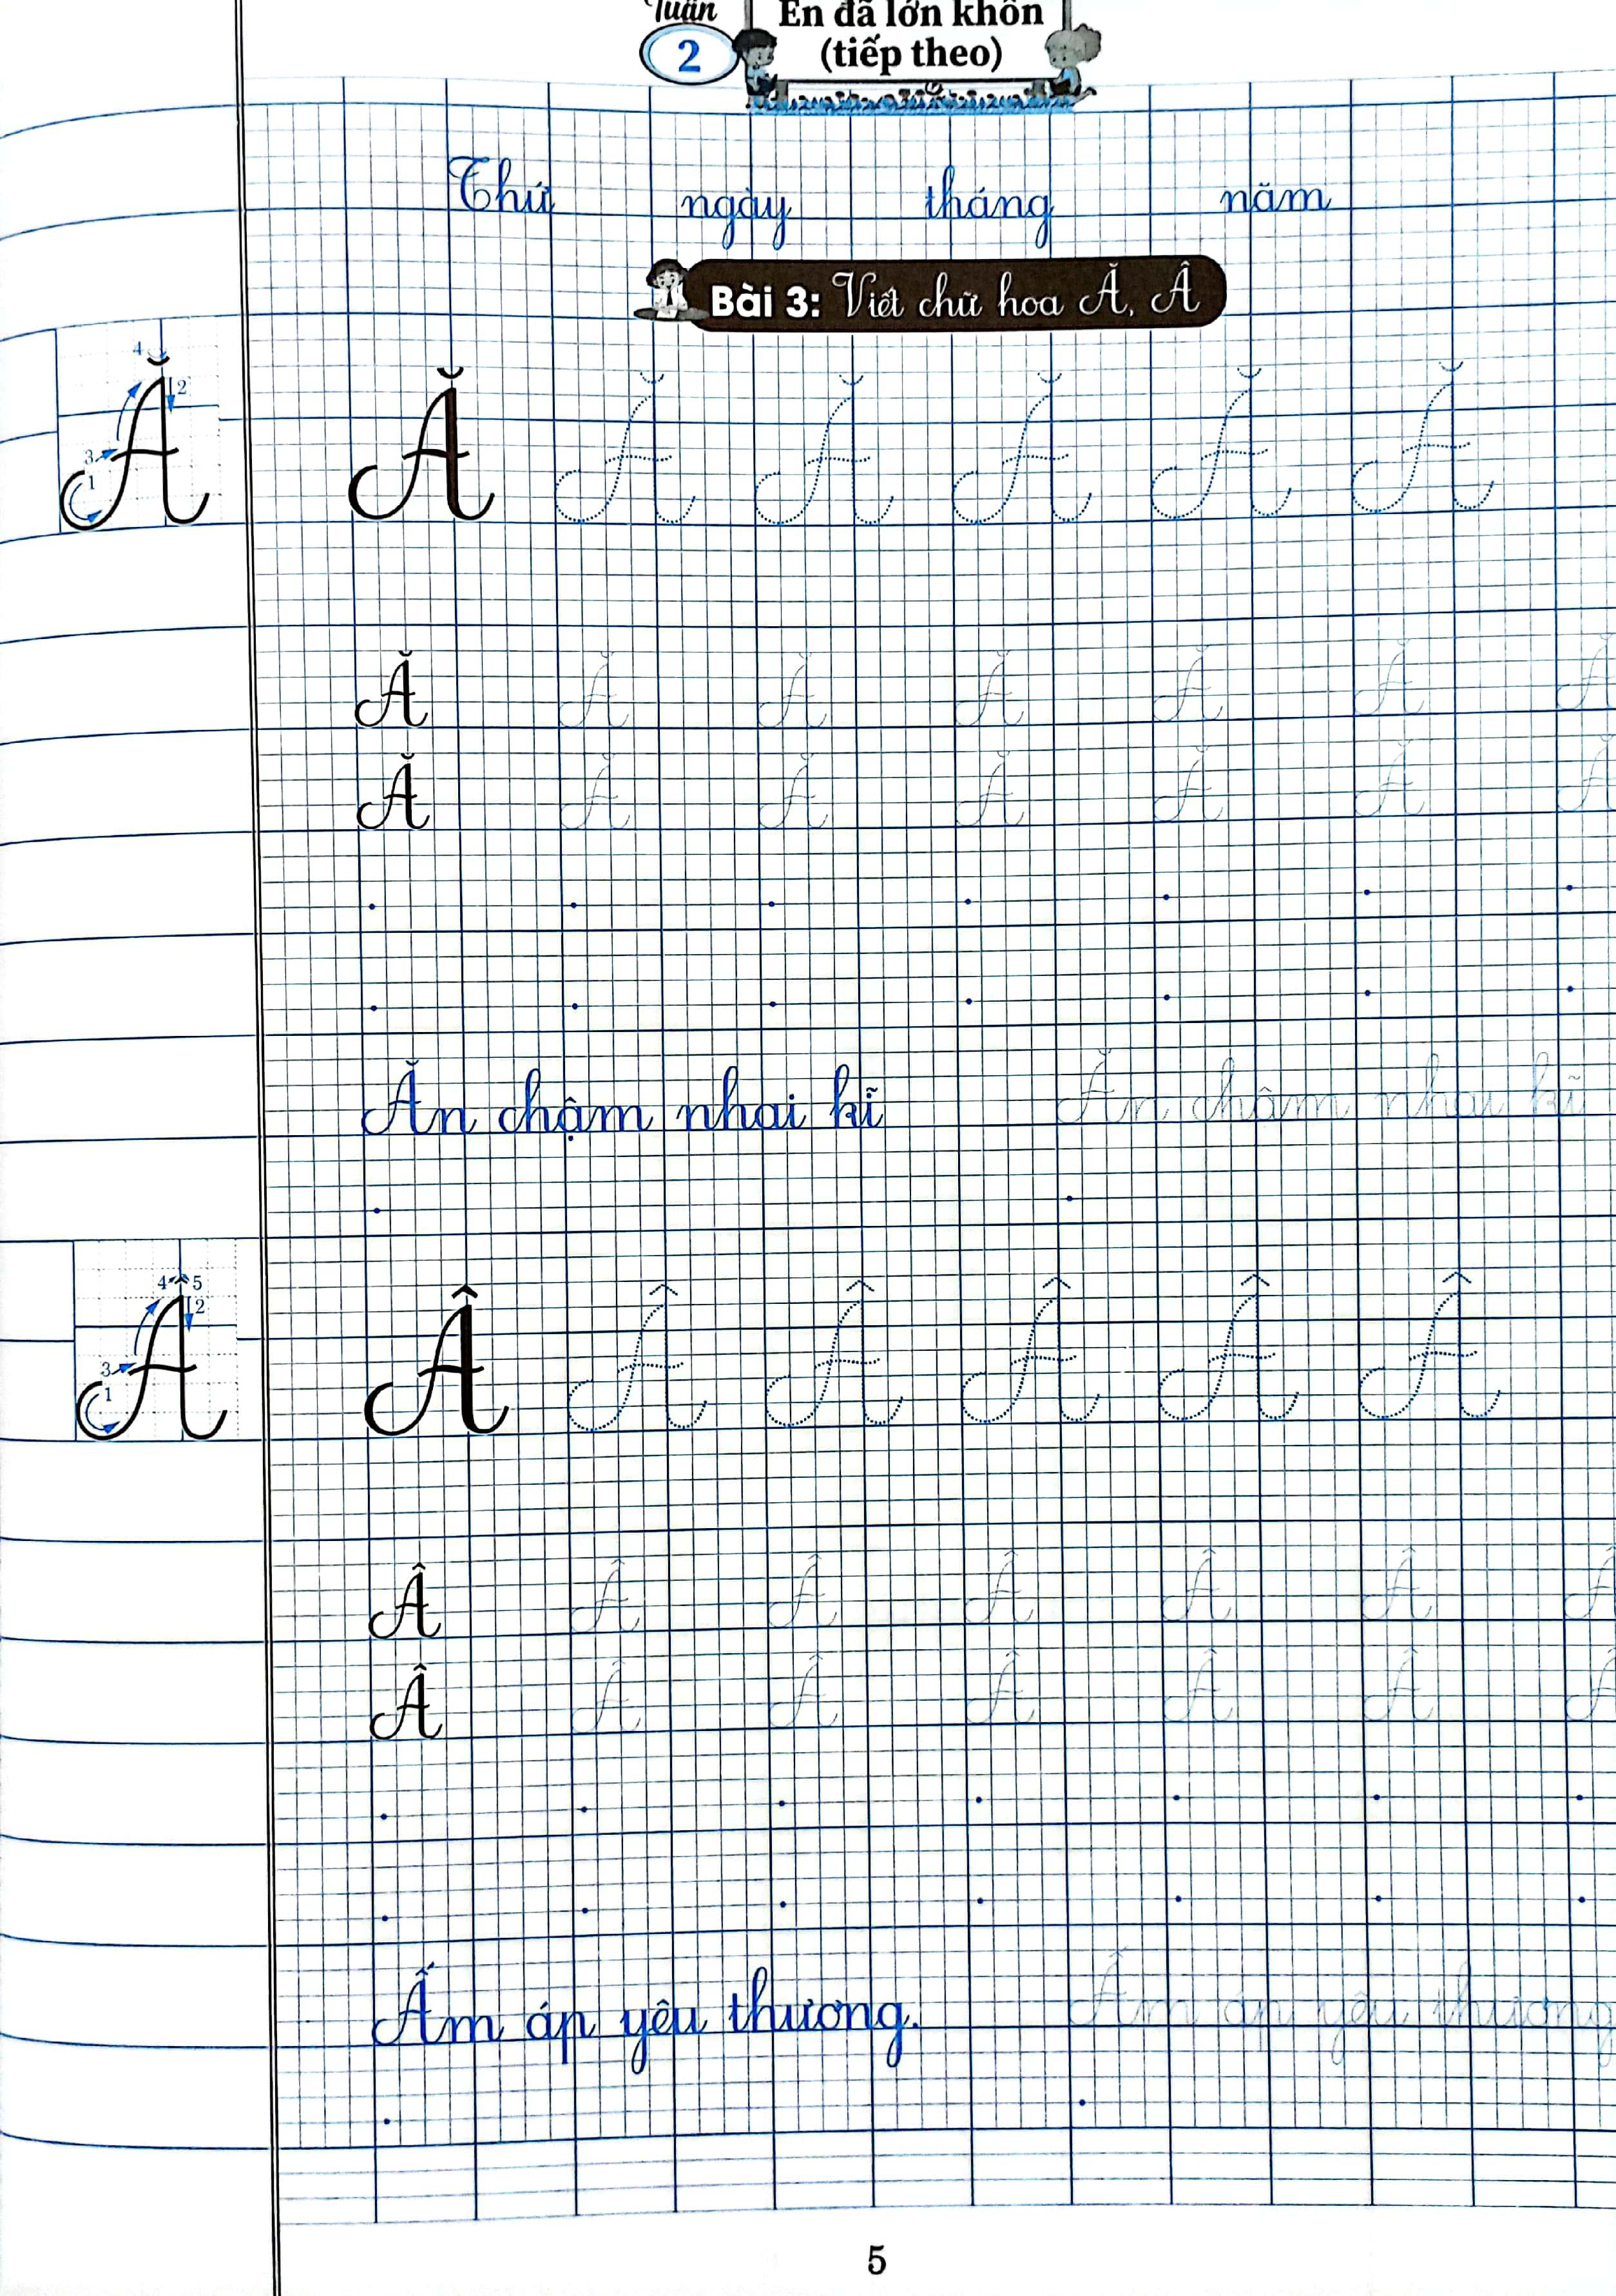 Tuần
2
Em đã lớn khôn
(tiếp theo)
Thứ ngày tháng năm
Bài 3: Viết chữ hoa Ă, Â
4 2 3 1
Ă Ă Ă Ă Ă Ă Ă
Ă Ă Ă Ă Ă Ă Ă
Ă Ă Ă Ă Ă Ă Ă
Ăn chậm nhai kĩ Ăn chậm nhai kĩ
4 5 2 3 1
Â Â Â Â Â Â Â
Â Â Â Â Â Â Â
Â Â Â Â Â Â Â
Ấm áp yêu thương. Ấm áp yêu thương
5